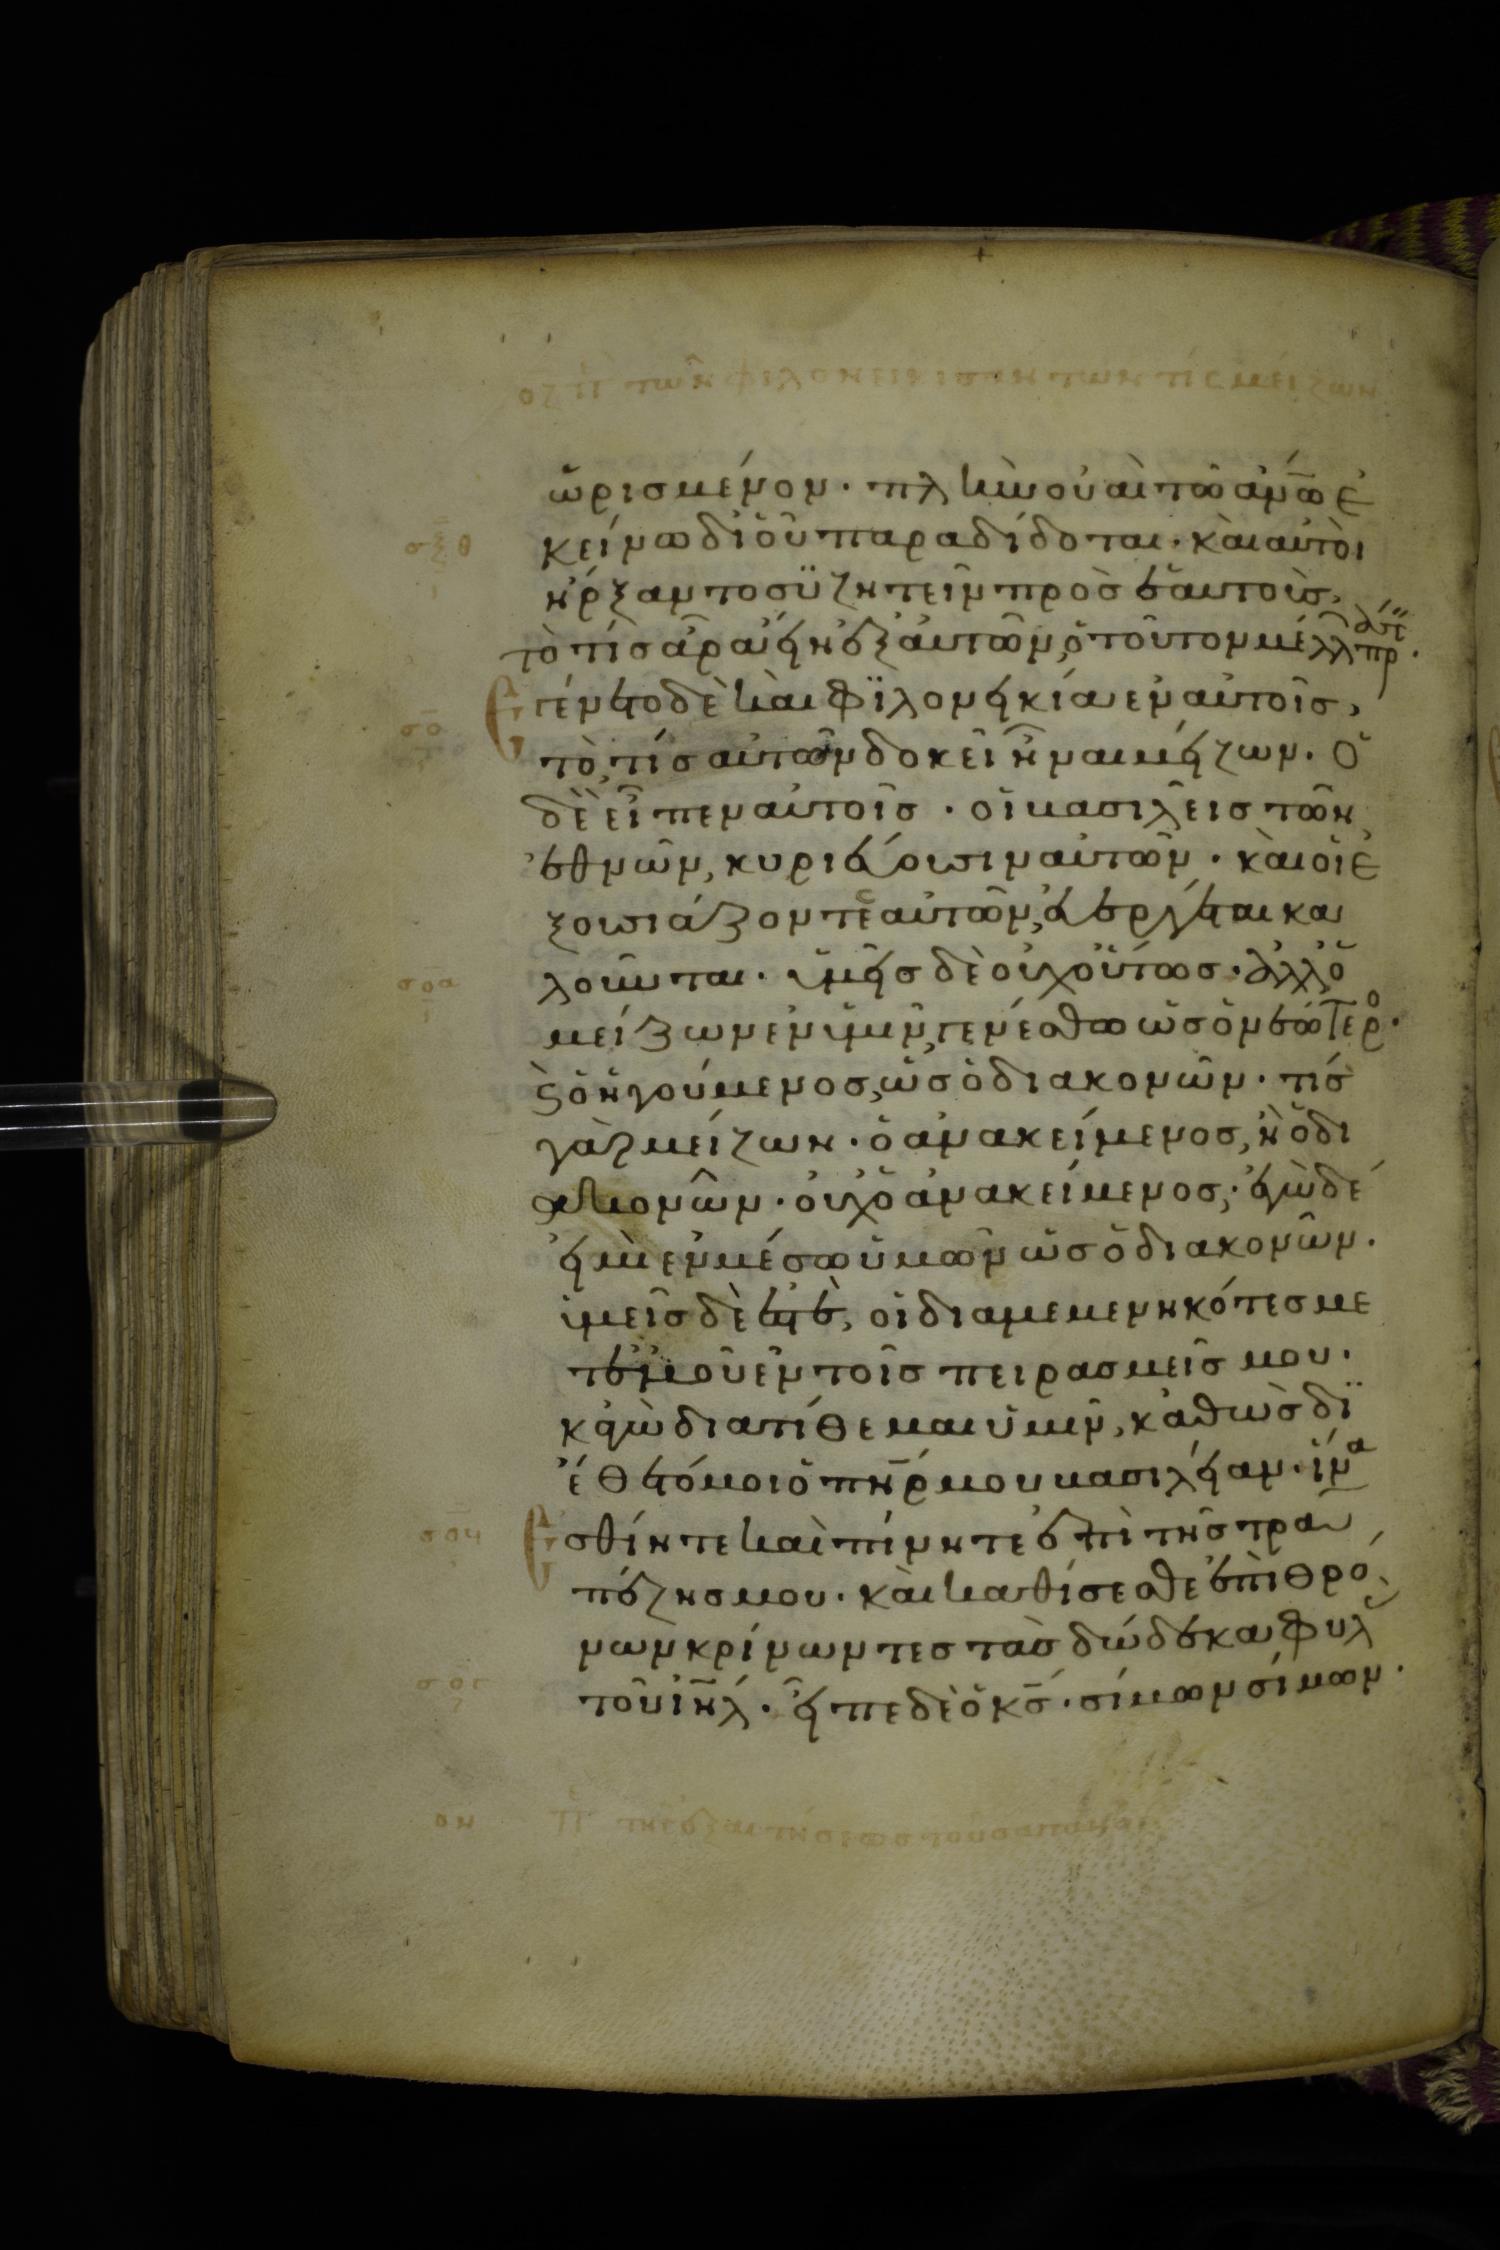 οζ πε τῶν φιλονεικησάντων τίς μείζων
ὡρισμένον· πλὴν οὐαὶ τῶ ἀν̅ω ἐ
σξθ κείνω δι' οὗ παραδίδοται· καὶ αὐτοὶ
ἤρξαντο συζητεῖν πρὸς ἑαυτοὺς,
τὸ τίς ἄρα εἴη ἐξ αὐτῶν, ὁ τοῦτο μέλλ πρ·
σο Ἐγένετο δὲ καὶ φϊλονεικία ἐν αὐτοῖς,
τὸ, τίς αὐτῶν δοκεῖ εἶναι μείζων. Ὁ
δὲ εἶπεν αὐτοῖς· οἱ βασιλεῖς τῶν
ἐθνῶν, κυριεύουσιν αὐτῶν· καὶ οἱ ἐ
ξουσιάζοντες αὐτῶν, εὐεργέται κα
σοα λοῦνται· ὑμεῖς δὲ οὐχ οὕτως· ἀλλ' ὁ
μείζων ἐν ὑμῖν, γενέσθω ὡς ὁ νεώτερο·
ϗ ὁ ἡγούμενος, ὡς ὁ διακονῶν· τίς
γὰρ μείζων· ὁ ἀνακείμενος, ἢ ὁ δι
ακονῶν· οὐχ ὁ ἀνακείμενος; ἐγὼ δέ
εἰμι ἐν μέσω ὑμῶν ὡς ὁ διακονῶν.
ὑμεῖς δὲ ἐστὲ, οἱ διαμεμενηκότες με
τ' ἐμοῦ ἐν τοῖς πειρασμεῖς μου·
κἀγὼ διατίθεμαι ὑμῖν, καθὼς δι
έθετό μοι ὁ πη̅ρ μου βασιλείαν· ἵνα
σοη Ἐσθίητε καὶ πίνητε ἐπὶ τῆς τρα
πέζης μου· καὶ καθίσεσθε ἐπὶ θρό
νων κρίνωντες τὰς δώδεκα φυλ
τοῦ ἰη̅λ· εἶπε δὲ ὁ κ̅ς· σίμων σίμων·
οη πε τῆς ἐξαιτήσεως τοῦ σατανᾶ